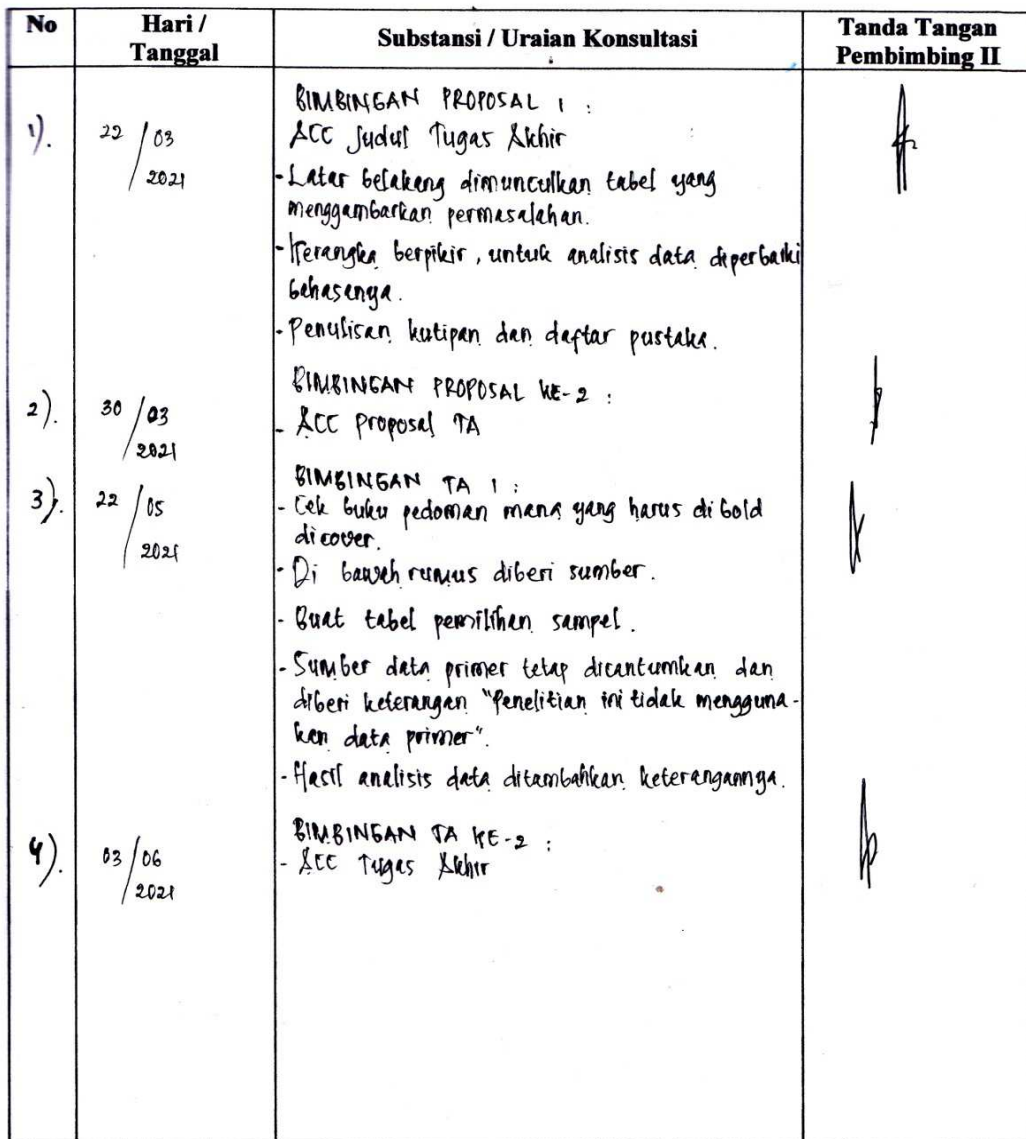 No
Hari /
Tanggal
Substansi / Uraian Konsultasi
Tanda Tangan
Pembimbing II
1).
22 / 03
2021
BIMBINGAN PROPOSAL 1 :
ACC Judul Tugas Akhir
- Latar belakang dimunculkan tabel yang
menggambarkan permasalahan.
- Kerangka berpikir, untuk analisis data diperbaiki
bahasanya.
- Penulisan kutipan dan daftar pustaka.
2).
30 / 03
2021
BIMBINGAN PROPOSAL KE-2 :
- ACC Proposal TA
3).
22 / 05
2021
BIMBINGAN TA 1 :
- Cek buku pedoman mana yang harus di bold
di cover.
- Di bawah rumus diberi sumber.
- Buat tabel pemilihan sampel.
- Sumber data primer tetap dicantumkan dan
diberi keterangan "Penelitian ini tidak mengguna-
kan data primer".
- Hasil analisis data ditambahkan keterangannya.
4).
03 / 06
2021
BIMBINGAN TA KE-2 :
- ACC Tugas Akhir